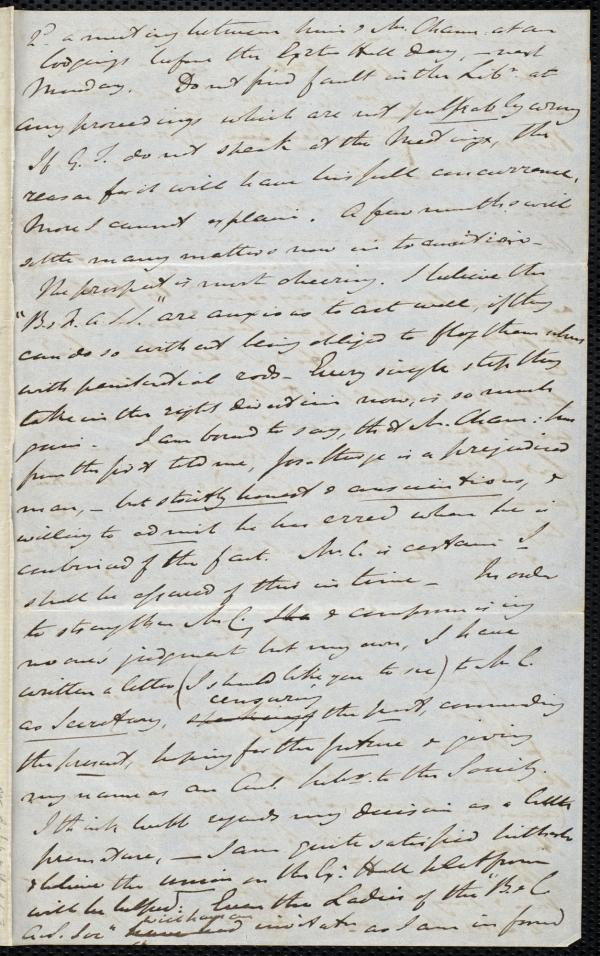 2d a meeting between him & Mr. Cham. at our
lodgings before the Exr Hall day, – next
Monday. Do not find fault in the Libr at
any proceedings which are not palpably wrong
If G. T. do not speak at the Meetings, the
reason for it will have his full concurrence.
More I cannot explain. A few months will
settle many matters now in transition –
The prospect is most cheering. I believe the
"B & F. A. S. S." are anxious to act well, if they
can do so without being obliged to flog themselves
with penitential rods – Every single step they
take in the right direction now, is so much
gain. I am bound to say, that Mr. Cham: has
from the first told me, is a prejudiced
man, – but strictly honest & conscientious, &
willing to admit he has erred when he is
convinced of the fact. Mr. C. is certain I
shall be assured of this in time – In order
to strengthen Mr. C, & compromising
no one's judgment but my own, I have
written a letter (I should like you to see) to Mr. C.
as Secretary, censuring the past, commending
the present, hoping for the future & giving
my name as an Anl Subr. to the Society.
I think Webb regards my decision as a little
premature, – I am quite satisfied
& believe the union on the Exr Hall platform
will be helped. Even the Ladies of the "B & F
A. S. Soc" invitatn as I am in